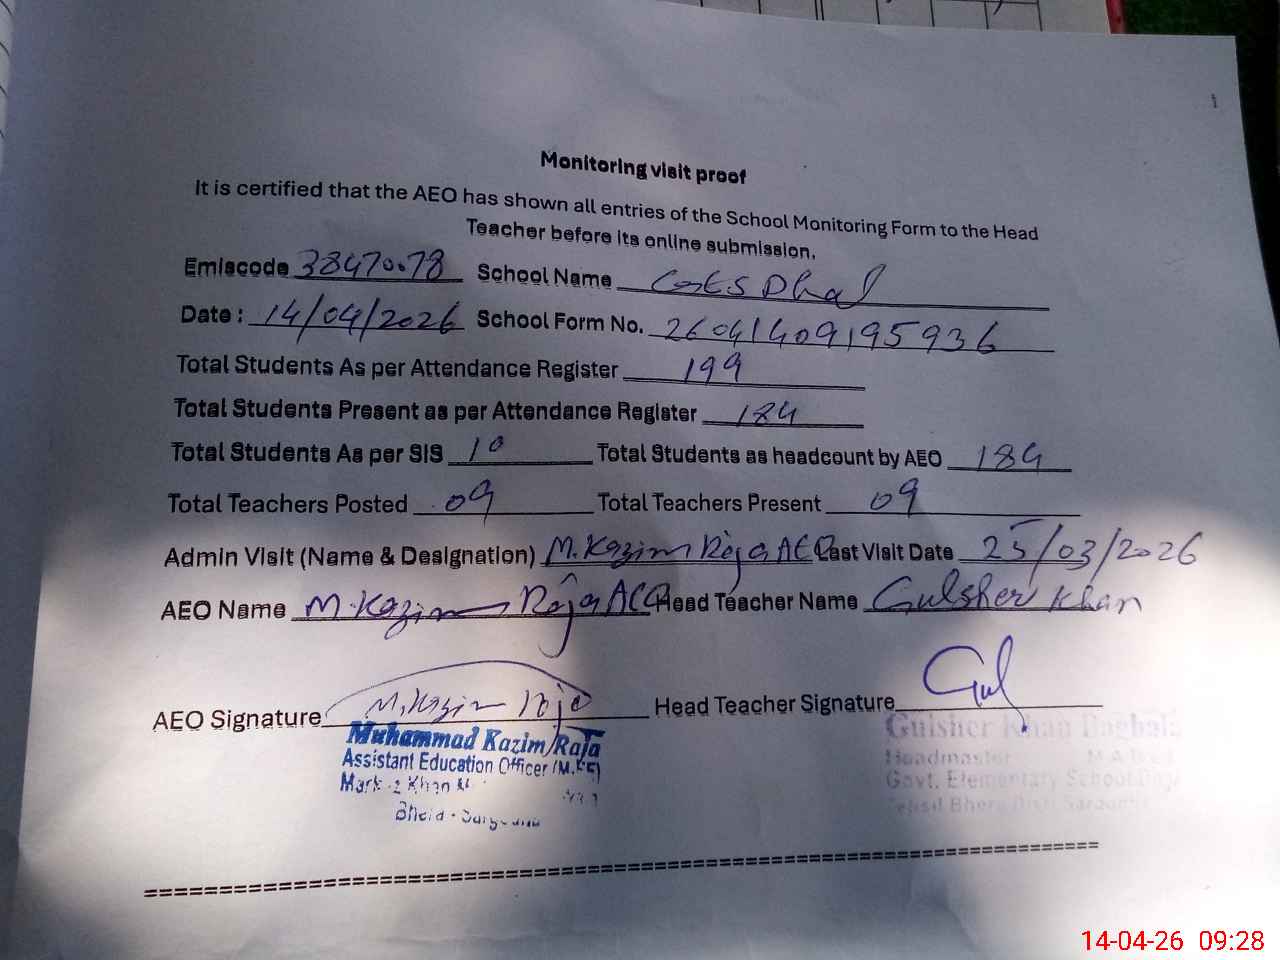 Monitoring visit proof
It is certified that the AEO has shown all entries of the School Monitoring Form to the Head
Teacher before its online submission.
Emiscode 38470078 School Name GES Dhal
Date : 14/04/2026 School Form No. 26041409195936
Total Students As per Attendance Register 199
Total Students Present as per Attendance Register 184
Total Students As per SIS 10 Total Students as headcount by AEO 184
Total Teachers Posted 09 Total Teachers Present 09
Admin Visit (Name & Designation) M. Kazim Raja AEO Last Visit Date 25/03/2026
AEO Name M. Kazim Raja AEO Head Teacher Name Gulsher Khan
AEO Signature M. Kazim Raja Head Teacher Signature Gul
Muhammad Kazim Raja
Assistant Education Officer (M.EE)
Gulsher Khan
Headmaster
Govt. Elementary School
Tehsil Bhera
14-04-26 09:28